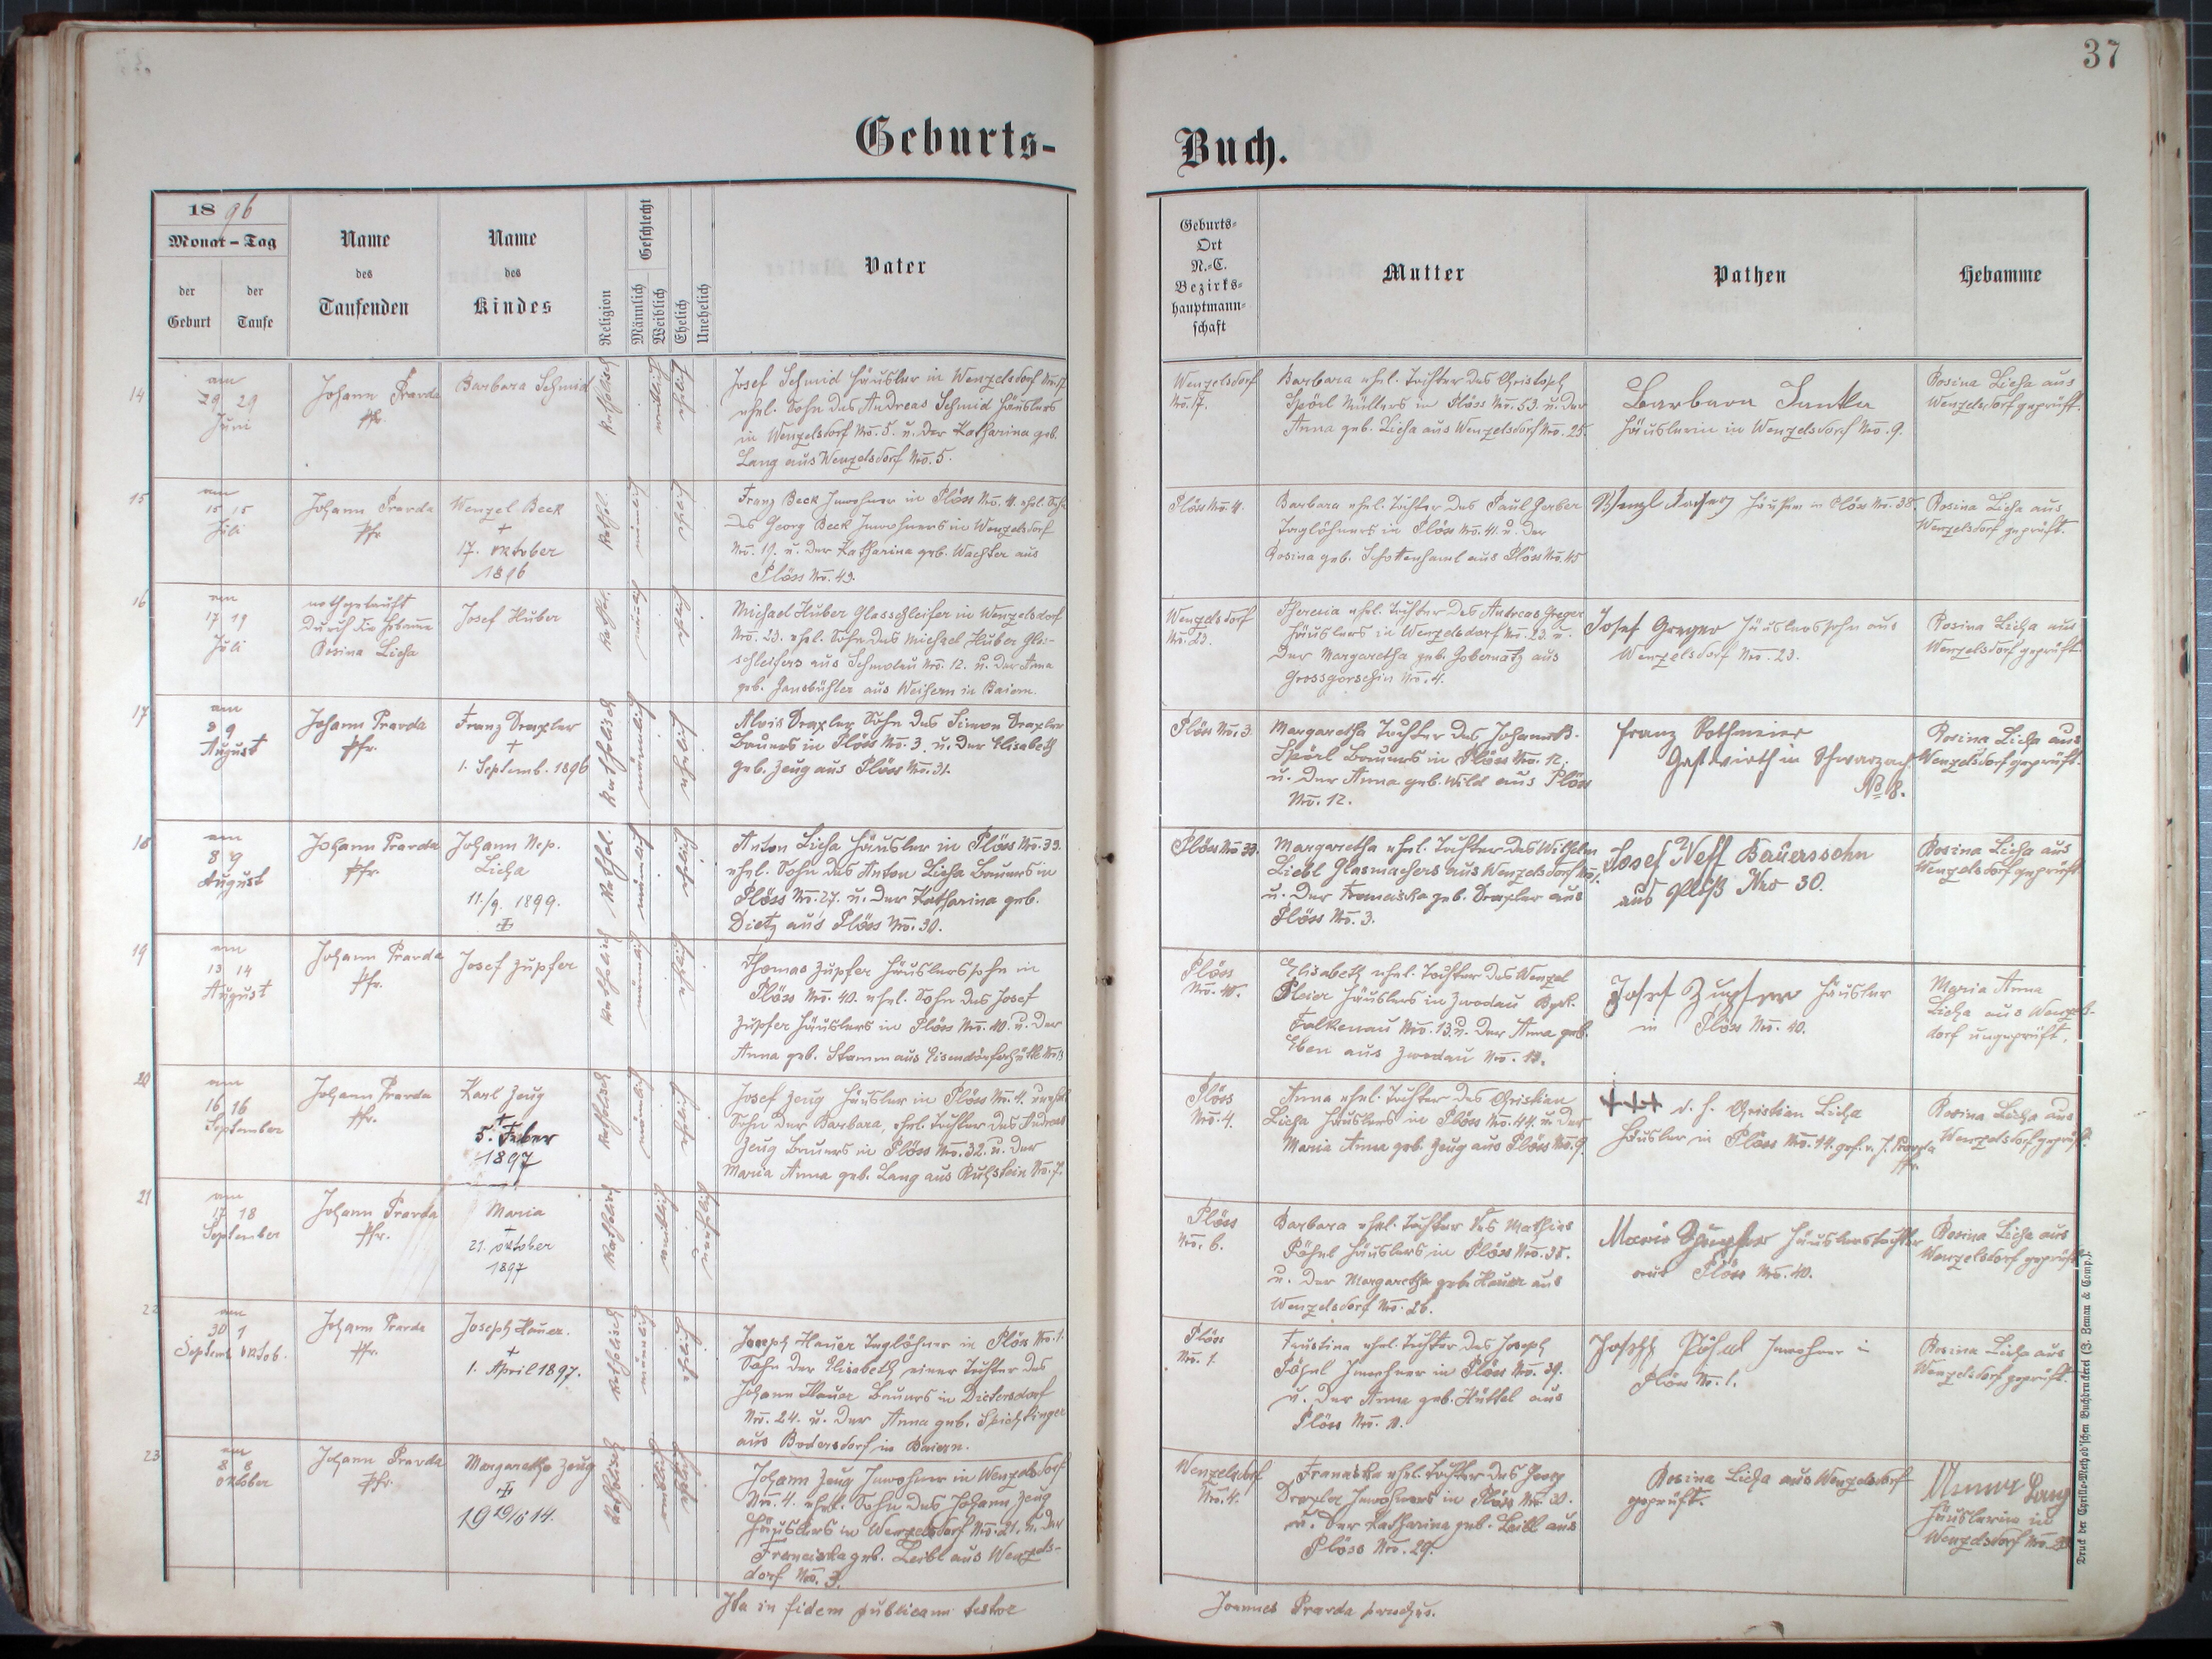 37
Geburts-
Buch.
1896
Monat - Tag
der Geburt
der Taufe
Name des Taufenden
Name des Kindes
Religion
Geschlecht
Männlich
Weiblich
Ehelich
Unehelich
Vater
Geburts-
Ort
N.-C.
Bezirks-
hauptmann-
schaft
Mutter
Pathen
Hebamme
14
am
29 29
Juni
Johann Pravda
Pfr.
Barbara Schmid
katholisch
weiblich
ehelich
Josef Schmid Häusler in Wenzelsdorf Nro. 17.
ehel. Sohn des Andreas Schmid Häuslers
in Wenzelsdorf Nro. 5. u. der Katharina geb.
Lang aus Wenzelsdorf Nro. 5.
Wenzelsdorf
Nro. 17.
Barbara ehel. Tochter des Christoph
Spörl Müllers in Plöss Nro. 53. u. der
Anna geb. Licha aus Wenzelsdorf Nro. 25.
Barbara Janka
Häuslerin in Wenzelsdorf Nro. 9.
Rosina Licha aus
Wenzelsdorf geprüft.
15
am
15 15
Juli
Johann Pravda
Pfr.
Wenzel Beck
†
17. Oktober
1896
kathol.
männlich
ehelich
Franz Beck Inwohner in Plöss Nro. 4. ehel. Sohn
des Georg Beck Inwohners in Wenzelsdorf
Nro. 19. u. der Katharina geb. Wachter aus
Plöss Nro. 49.
Plöss Nro. 4.
Barbara ehel. Tochter des Paul Gerber
Taglöhners in Plöss Nro. 41. u. der
Rosina geb. Schottenhaml aus Plöss Nro. 45
Häusler in Plöss Nro. 38.
Rosina Licha aus
Wenzelsdorf geprüft.
16
am
17 19
Juli
nothgetauft
durch die Hebame
Rosina Licha
Josef Huber
kathol.
männlich
ehelich
Michael Huber Glasschleifer in Wenzelsdorf
Nro. 23. ehel. Sohn des Michael Huber Glas-
schleifers aus Schmolau Nro. 12. u. der Anna
geb. Gansbühler aus Weihern in Baiern.
Wenzelsdorf
Nro. 23.
Theresia ehel. Tochter des Andreas Greger
Häuslers in Wenzelsdorf Nro. 23. u.
der Margaretha geb. Gobernatz aus
Grossgorschin Nro. 4.
Josef Greger Häuslerssohn aus
Wenzelsdorf Nro. 23.
Rosina Licha aus
Wenzelsdorf geprüft
17
am
8 9
August
Johann Pravda
Pfr.
Franz Draxler
†
1. Septemb. 1896
katholisch
männlich
ehelich
Alois Draxler Sohn des Simon Draxler
Bauers in Plöss Nro. 3. u. der Elisabeth
geb. Zeug aus Plöss Nro. 31.
Plöss Nro. 3.
Margaretha Tochter des Johann B.
Spörl Bauers in Plöss Nro. 12.
u. der Anna geb. Wild aus Plöss
Nro. 12.
Franz Rothmeier
Gastwirth in Schwarzach
No 8.
Rosina Licha aus
Wenzelsdorf geprüft.
18
am
8 9
August
Johann Pravda
Pfr.
Johann Nep.
Licha
11./9. 1899.
kathol.
männlich
ehelich
Anton Licha Häusler in Plöss Nro. 33.
ehel. Sohn des Anton Licha Bauers in
Plöss Nro. 27. u. der Katharina geb.
Dietz aus Plöss Nro. 30.
Plöss Nro. 33.
Margaretha ehel. Tochter des Wilhelm
Liebl Glasmachers aus Wenzelsdorf Nro. 1.
u. der Franciska geb. Draxler aus
Plöss Nro. 3.
Josef Neff Bauerssohn
aus Plöß Nro 30.
Rosina Licha aus
Wenzelsdorf geprüft.
19
am
13 14
August
Johann Pravda
Pfr.
Josef Zupfer
katholisch
männlich
ehelich
Thomas Zupfer Häuslerssohn in
Plöss Nro. 40. ehel. Sohn des Josef
Zupfer Häuslers in Plöss Nro. 40. u. der
Anna geb. Stamm aus Eisendorferhütte
Plöss
Nro. 40.
Elisabeth ehel. Tochter des Wenzel
Pleier Häuslers in Zwodau Bzrk.
Falkenau Nro. 13. u. der Anna geb.
Eben aus Zwodau Nro. 13.
Josef Zupfer Häusler
in Plöss Nro. 40.
Maria Anna
Licha aus Wenzels-
dorf ungeprüft.
20
am
16 16
September
Johann Pravda
Pfr.
Karl Zeug
†
5. Feber
1897
katholisch
männlich
ehelich
Josef Zeug Häusler in Plöss Nro. 4. unehel.
Sohn der Barbara, ehel. Tochter des Andreas
Zeug Bauers in Plöss Nro. 32. u. der
Maria Anna geb. Lang aus Ruhstein Nro. 7.
Plöss
Nro. 4.
Anna ehel. Tochter des Christian
Licha Häuslers in Plöss Nro. 44. u. der
Maria Anna geb. Zeug aus Plöss Nro. 9.
+++ d. h. Christian Licha
Häusler in Plöss Nro. 44. gef. v. J. Pravda
Pfr.
Rosina Licha aus
Wenzelsdorf geprüft.
21
am
17 18
September
Johann Pravda
Pfr.
Maria
†
21. Oktober
1897
katholisch
weiblich
unehelich
Plöss
Nro. 6.
Barbara ehel. Tochter des Mathias
Pöhnl Häuslers in Plöss Nro. 38.
u. der Margaretha geb. Hauer aus
Wenzelsdorf Nro. 26.
Maria Zupfer Häuslerstochter
aus Plöss Nro. 40.
Rosina Licha aus
Wenzelsdorf geprüft
22
am
30 1
Septemb. Oktob.
Johann Pravda
Pfr.
Joseph Hauer.
†
1. April 1897.
katholisch
männlich
ehelich
Joseph Hauer Taglöhner in Plöss Nro. 1.
Sohn der Elisabeth einer Tochter des
Johann Hauer Bauers in Dietersdorf
Nro. 24. u. der Anna geb.
aus Bodersdorf in Baiern.
Plöss
Nro. 1.
Faustina ehel. Tochter des Joseph
Pöhnl Inwohner in Plöss Nro. 39.
u. der Anna geb. Hüttel aus
Plöss Nro.
Joseph Pöhnl Inwohner in
Plöss Nro. 1.
Rosina Licha aus
Wenzelsdorf geprüft.
23
am
8 8
Oktober
Johann Pravda
Pfr.
Margaretha Zeug
katholisch
weiblich
ehelich
Johann Zeug Inwohner in Wenzelsdorf
Nro. 4. ehel. Sohn des Johann Zeug
Häuslers in Wenzelsdorf Nro. 21. u. der
Franciska geb. Leibl aus Wenzels-
dorf Nro. 3.
Wenzelsdorf
Nro. 4.
Franciska ehel. Tochter des Georg
Draxler Inwohners in Plöss Nro. 30.
u. der Katharina geb. Leibl aus
Plöss Nro. 29.
Rosina Licha aus Wenzelsdorf
geprüft.
Lang
Häuslerin in
Wenzelsdorf Nro.
Ita in fidem publicam testor
Joannes Pravda parochus.
Druck der Cyrillo-Method'schen Buchdruckerei (J. Zeman & Comp.).